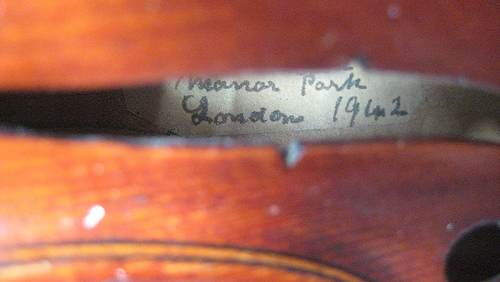 Manor Park
London 1942